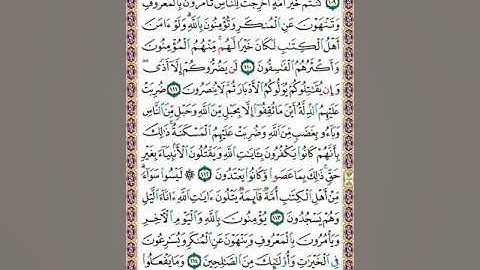 ١٠٩ كُنتُمْ خَيْرَ أُمَّةٍ أُخْرِجَتْ لِلنَّاسِ تَأْمُرُونَ بِالْمَعْرُوفِ
وَتَنْهَوْنَ عَنِ الْمُنكَرِ وَتُؤْمِنُونَ بِاللَّهِ وَلَوْ ءَامَنَ
أَهْلُ الْكِتَٰبِ لَكَانَ خَيْرًا لَّهُم مِّنْهُمُ الْمُؤْمِنُونَ
وَأَكْثَرُهُمُ الْفَٰسِقُونَ ١١٠ لَن يَضُرُّوكُمْ إِلَّا أَذًى
وَإِن يُقَٰتِلُوكُمْ يُوَلُّوكُمُ الْأَدْبَارَ ثُمَّ لَا يُنصَرُونَ ١١١ ضُرِبَتْ
عَلَيْهِمُ الذِّلَّةُ أَيْنَ مَا ثُقِفُوا إِلَّا بِحَبْلٍ مِّنَ اللَّهِ وَحَبْلٍ مِّنَ النَّاسِ
وَبَاءُو بِغَضَبٍ مِّنَ اللَّهِ وَضُرِبَتْ عَلَيْهِمُ الْمَسْكَنَةُ ذَٰلِكَ
بِأَنَّهُمْ كَانُوا يَكْفُرُونَ بِـَٔايَٰتِ اللَّهِ وَيَقْتُلُونَ الْأَنۢبِيَاءَ بِغَيْرِ
حَقٍّ ذَٰلِكَ بِمَا عَصَوا وَّكَانُوا يَعْتَدُونَ ١١٢ ۞ لَيْسُوا سَوَاءً
مِّنْ أَهْلِ الْكِتَٰبِ أُمَّةٌ قَائِمَةٌ يَتْلُونَ ءَايَٰتِ اللَّهِ ءَانَاءَ الَّيْلِ
وَهُمْ يَسْجُدُونَ ١١٣ يُؤْمِنُونَ بِاللَّهِ وَالْيَوْمِ الْءَاخِرِ
وَيَأْمُرُونَ بِالْمَعْرُوفِ وَيَنْهَوْنَ عَنِ الْمُنكَرِ وَيُسَٰرِعُونَ
فِي الْخَيْرَٰتِ وَأُولَٰئِكَ مِنَ الصَّٰلِحِينَ ١١٤ وَمَا يَفْعَلُوا